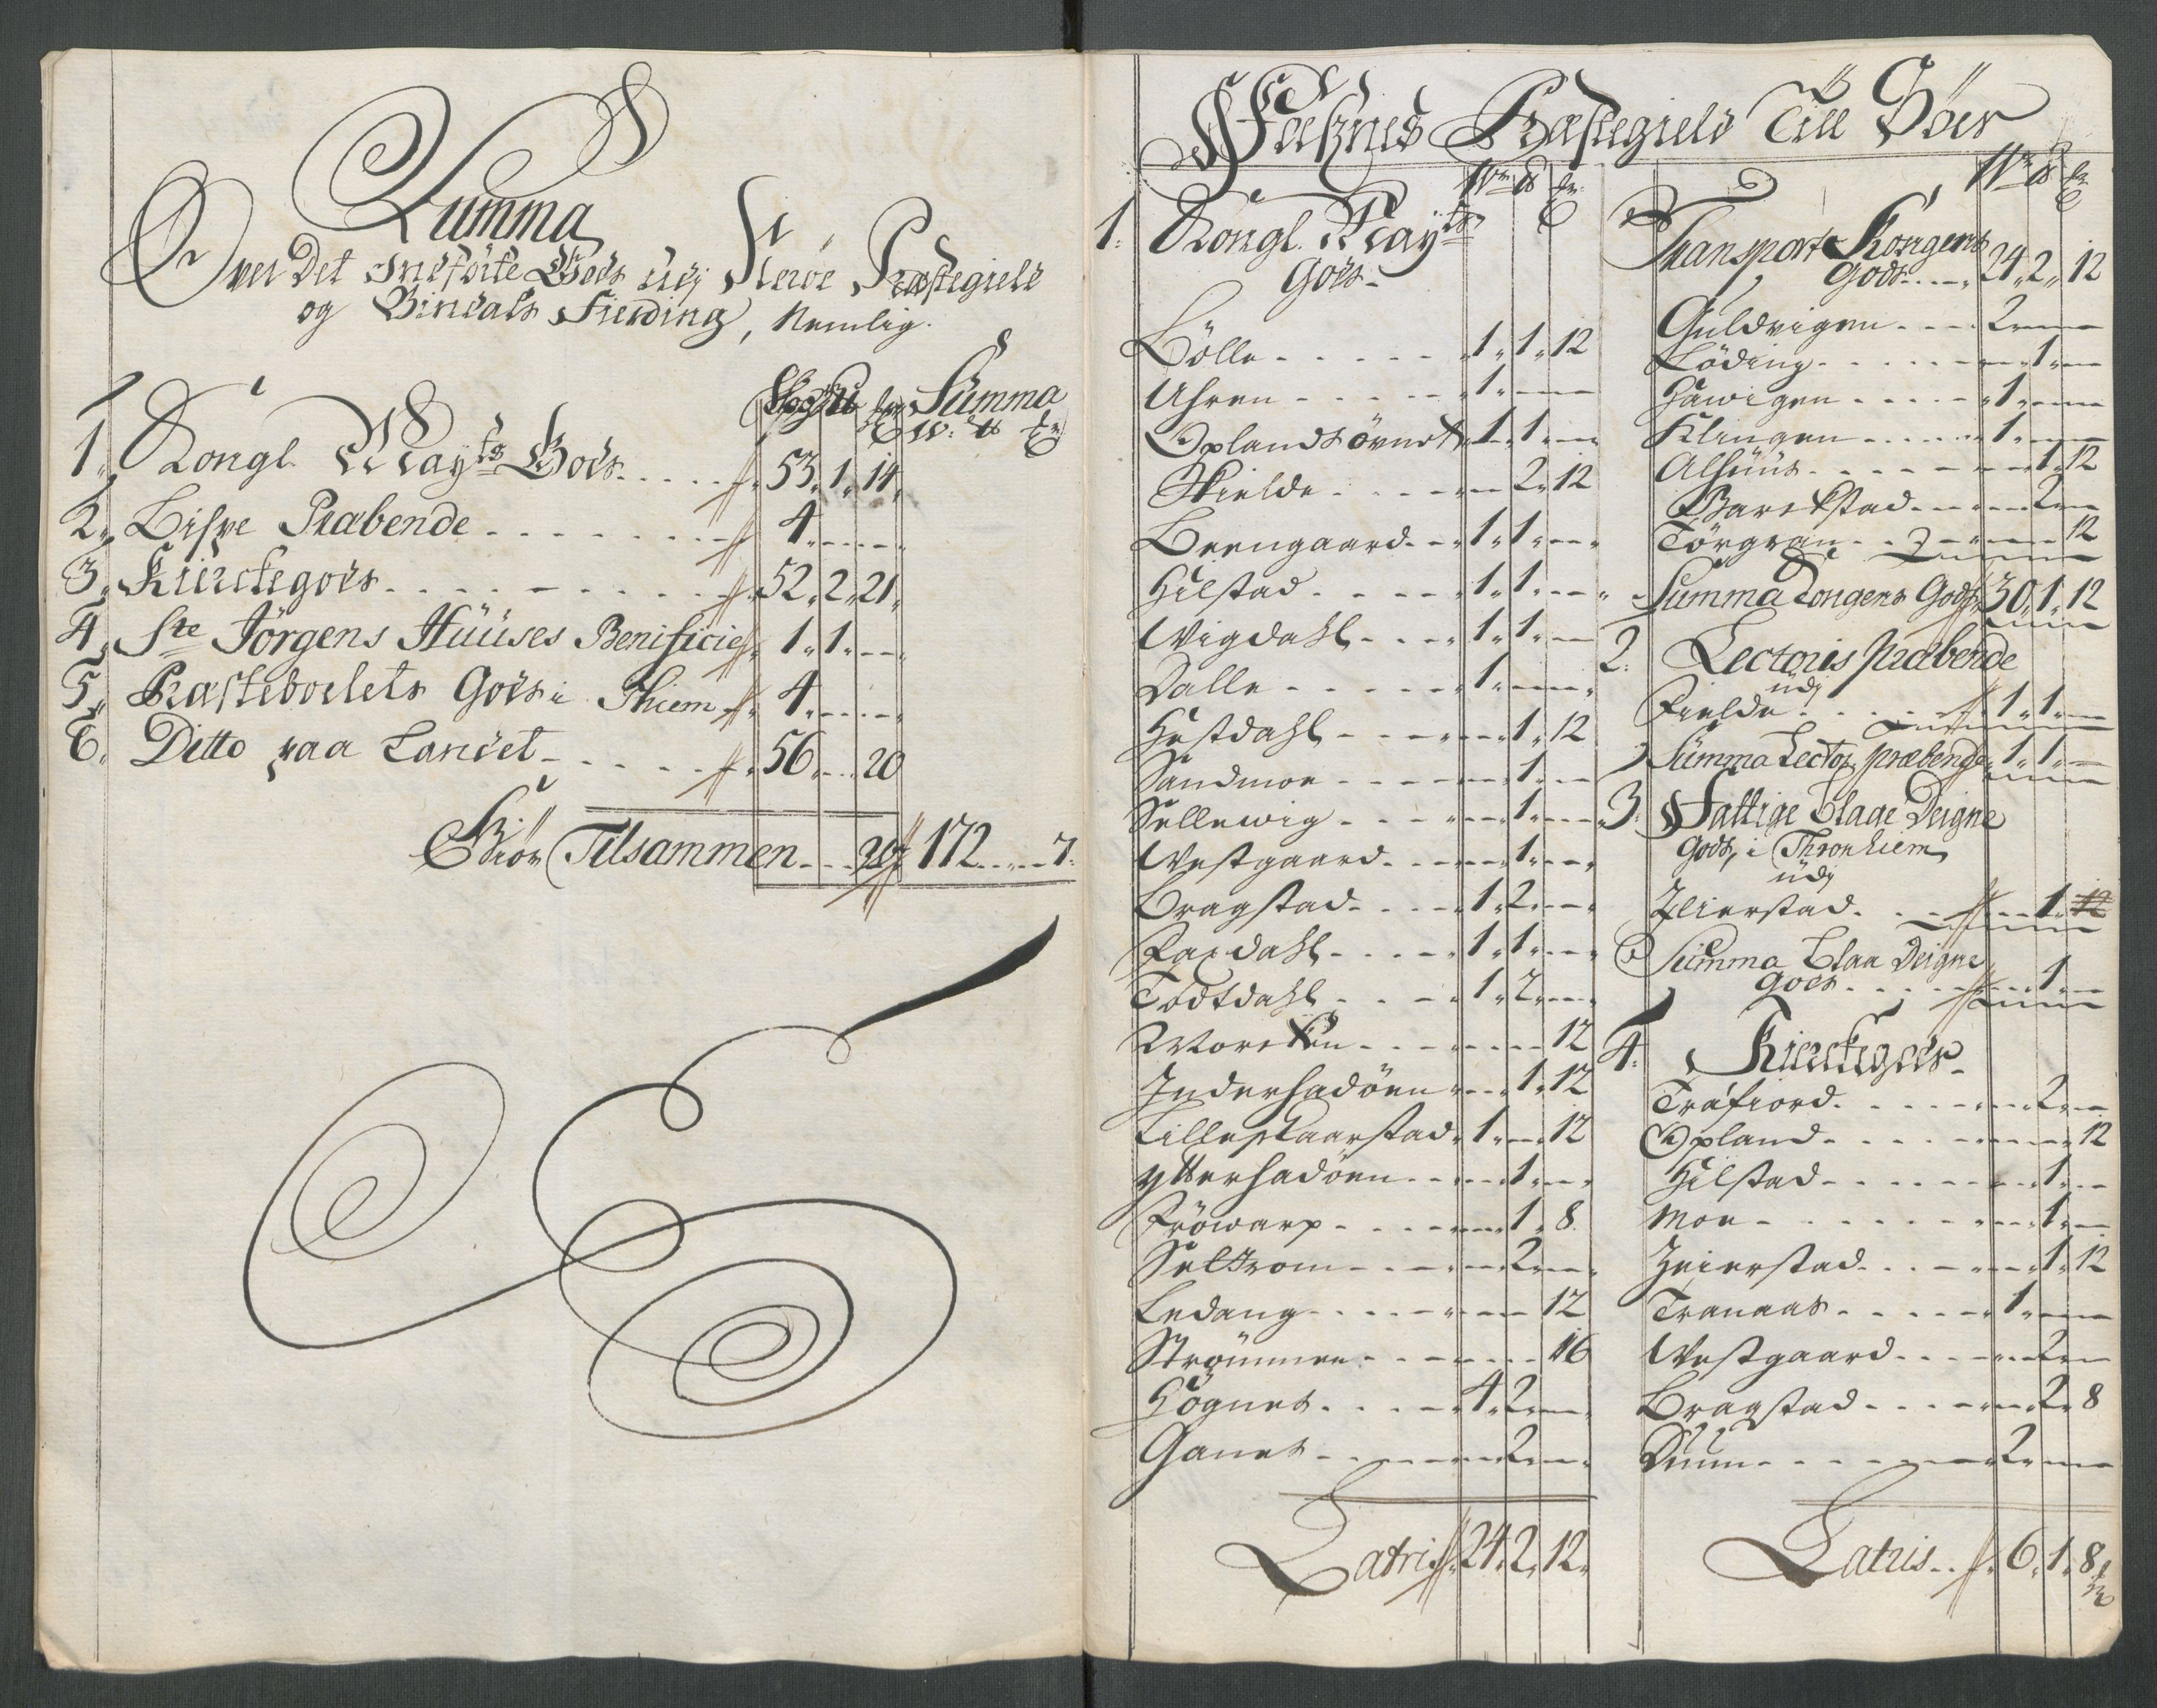 Summa
Over Det Indförte Gods udj Næröe Præstegield
og Bindals Fierding, Nemlig.
Summa
W: # Mr
1. Kongl. Mayts Gods..... 53. 1. 14.
2. Bispe Præbende ....... 4.
3. Kirckegods........ 52. 2. 21.
4. Ste Jörgens Huuses Benificie 1. 1.
5. Præstebolets Gods i Thiem 4.
6. Ditto paa Landet ...... 56. 20
Tilsammen 172. 7.
Præstegield Till Söer
1. Kongl. Mayts
Gods
Bölle ..... 1. 1. 12
Uhren ..... 1.
Oplandsövnet 1. 1.
Skielde .... 2. 12
Beengaard 1. 1.
Hilstad ..... 1. 1.
Wigdahl .... 1. 1.
Dalle ..... 1.
Hustdahl ..... 1. 12
Sandmoe ..... 1.
Sellewig ..... 1.
Westgaard ..... 1.
Bragstad .... 1. 2.
Fardahl .... 1. 1.
Todtdahl .... 1. 2.
12
Inderhadöen 1. 12
Lilleskaarstad 1. 12
Ytterhadöen 1.
Fröwarp ..... 1. 8.
Seltrom ..... 2.
Ledang ..... 12
Strömmen ..... 16
Högnes .... 4. 2.
Ganes ..... 2.
Latris 24. 2. 12.
Transport Kongens
Gods.... 24. 2. 12
Guldvigen .... 2.
Löding ..... 1.
Hawigen ..... 1.
Klingen ..... 1.
Alhuus ..... 1. 12
Barckstad ..... 2.
Törgran ... 12
Summa Kongens Gods 30. 1. 12
2. Lectoris Præbende
udj
Fielde .... 1. 1.
Summa Lector Præbende 1. 1.
3. Fattige Blaae Deigne
Gods, i Thronhiem
udj
Zeierstad .... 1. 12
Summa Blaa Deigne
Gods .... 1.
4. Kirckegods
Trafiord ..... 2.
Opland ..... 12
Hilstad ..... 1.
Moe ..... 1.
Zeierstad ..... 1. 12
Tranaas ..... 1.
Westgaard ..... 2.
Bragstad ..... 2. 8
Duun ..... 2.
Latris .. 6. 1. 8